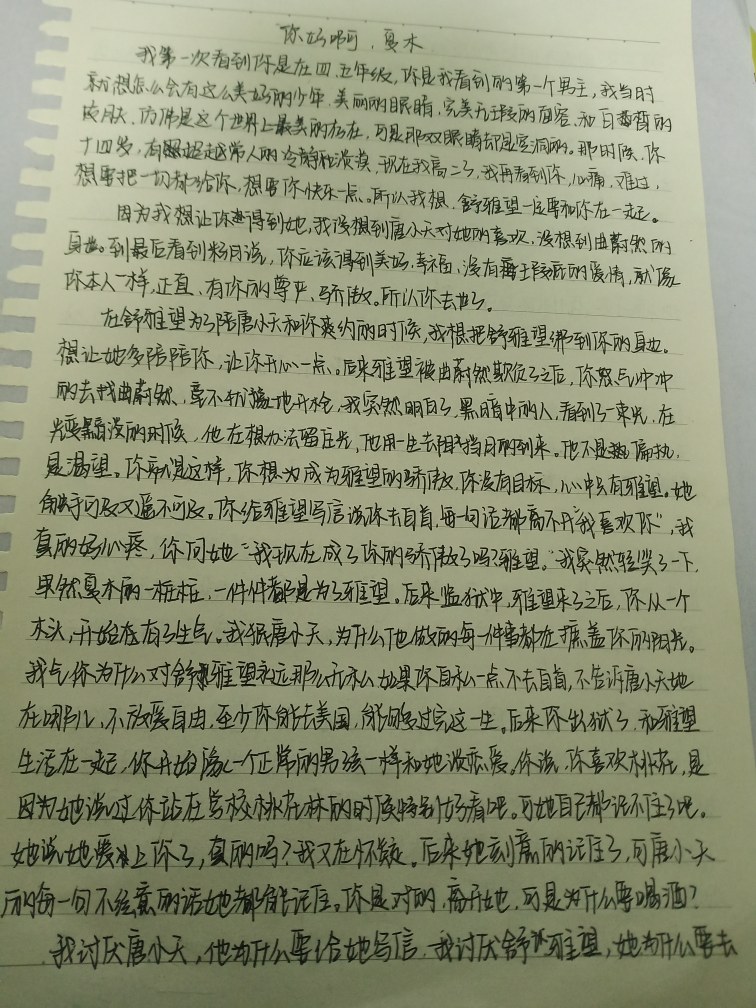 你好啊，夏木
我第一次看到你是在四、五年级，你是我看到的第一个男主，我当时
就想怎么会有这么美好的少年，美丽的眼睛，完美无瑕的面容，和白皙的
皮肤，仿佛是这个世界上最美的存在，可是那双眼睛却是空洞的。那时候，你
十四岁，有超越常人的冷静和淡漠，现在我高二了，我再看到你，心痛，难过，
想要把一切都给你，想要你快乐一点。所以我想，舒雅望一定要和你在一起。
因为我想让你得到她，我没想到唐小天对她的喜欢，没想到曲蔚然的
身世。到最后看到粉丝说，你应该得到美好、幸福、没有瑕疵的爱情，就像
你本人一样，正直、有你的尊严、骄傲。所以你去世了。
在舒雅望为了陪唐小天和你爽约的时候，我想把舒雅望绑到你的身边。
想让她多陪陪你，让你开心一点。后来雅望被曲蔚然欺负了之后，你怒气冲冲
的去找曲蔚然，毫不犹豫地开枪，我突然明白了，黑暗中的人，看到了一束光，在
光要淹没的时候，他在想办法留住光，他用一生去阻挡月的到来。他不是偏执，
是渴望。你就是这样，你想成为雅望的骄傲，你没有目标，心中只有雅望。她
触手可及又遥不可及。你给雅望写信说你去自首，每一句话都离不开“我喜欢你”，我
真的好心疼，你问她“我现在成了你的骄傲了吗？雅望。”我突然轻笑了一下，
果然夏木的一桩桩，一件件都是为了雅望。后来监狱中，雅望来了之后，你从一个
木头，开始有了生气。我恨唐小天，为什么他做的每一件事都在掩盖你的阳光。
我气你为什么对舒雅望永远那么无私，如果你自私一点，不去自首，不告诉唐小天她
在哪儿，不放爱自由，至少你能去美国，能够过完这一生。后来你出狱了，和雅望
生活在一起，你开始像一个正常的男孩一样和她谈恋爱。你说，你喜欢桃花，是
因为她说过你站在学校桃花林的时候特别好看吧。可她自己都记不住了吧。
她说她爱上你了，真的吗？我又在怀疑。后来她刻意的记住了，可唐小天
的每一句不经意的话她都能记住。你是对的，离开她，可是为什么要喝酒？
我讨厌唐小天，他为什么要给她写信，我讨厌舒雅望，她为什么要去